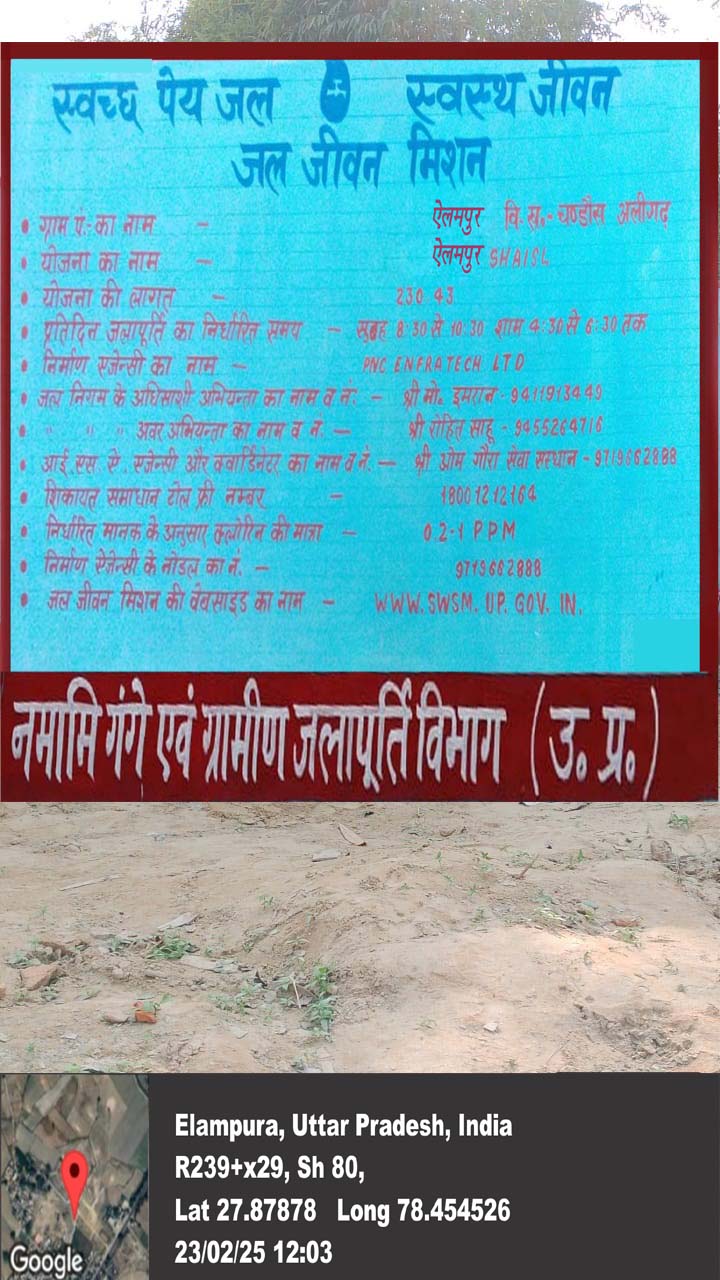 स्वच्छ पेय जल स्वस्थ जीवन
जल जीवन मिशन
• ग्राम पं.- का नाम - ऐलमपुर वि.ख.- चण्डौस अलीगढ़
• योजना का नाम - ऐलमपुर SHAISL
• योजना की लागत - 230.43
• प्रतिदिन जलापूर्ति का निर्धारित समय - सुबह 8:30 से 10:30 शाम 4:30 से 6:30 तक
• निर्माण एजेन्सी का नाम - PNC ENFRATECH LTD
• जल निगम के अधिसाशी अभियन्ता का नाम व नं: - श्री मो. इमरान - 9411913449
• " " " अवर अभियन्ता का नाम व नं. - श्री रोहित साहू - 9455264716
• आई. एस. ऐ. एजेन्सी और क्वार्डिनेटर का नाम व नं. - श्री ओम गौरा सेवा संस्थान - 9719662888
• शिकायत समाधान टोल फ्री नम्बर - 18001212164
• निर्धारित मानक के अनुसार क्लोरिन की मात्रा - 0.2-1 PPM
• निर्माण ऐजेन्सी के नोडल का नं. - 9719662888
• जल जीवन मिशन की वेबसाइड का नाम - WWW.SWSM.UP.GOV.IN.
नमामि गंगे एवं ग्रामीण जलापूर्ति विभाग (उ. प्र.)
Elampura, Uttar Pradesh, India
R239+x29, Sh 80,
Lat 27.87878 Long 78.454526
23/02/25 12:03
Google